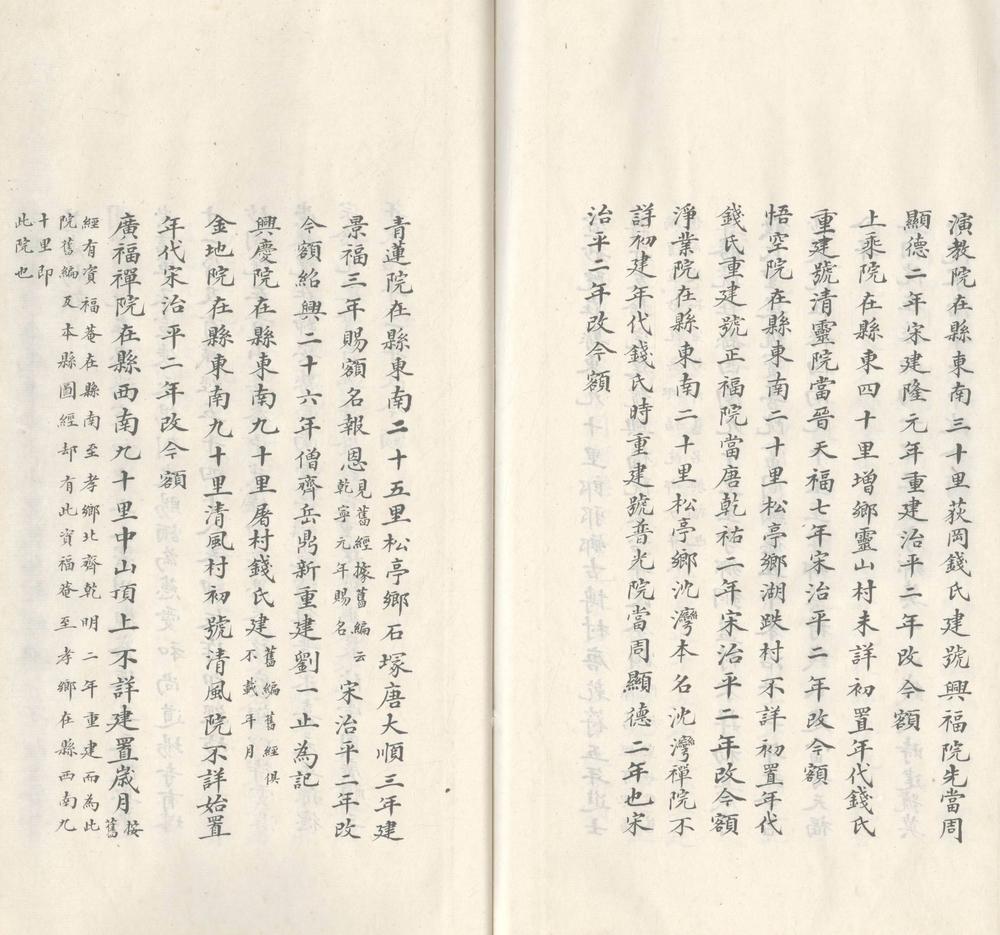 演教院在縣東南三十里荻岡錢氏建號興福院先當周
顯德二年宋建隆元年重建治平二年改今額
上乘院在縣東四十里增鄉靈山村未詳初置年代錢氏
重建號清靈院當晉天福七年宋治平二年改今額
悟空院在縣東南二十里松亭鄉湖趺村不詳初置年代
錢氏重建號正福院當唐乾祐二年宋治平二年改今額
淨業院在縣東南二十里松亭鄉沈灣本名沈灣禪院不
詳初建年代錢氏時重建號普光院當周顯德二年也宋
治平二年改今額
青蓮院在縣東南二十五里松亭鄉石塚唐大順三年建
景福三年賜額名報恩見舊經據舊編云乾寧元年賜名宋治平二年改
今額紹興二十六年僧齊岳鼎新重建劉一止為記
興慶院在縣東南九十里屠村錢氏建舊編舊經俱不載年月
金地院在縣東南九十里清風村初號清風院不詳始置
年代宋治平二年改今額
廣福禪院在縣西南九十里中山頂上不詳建置歲月按舊
經有資福菴在縣南至孝鄉北齊乾明二年重建而為此
院舊編及本縣圖經却有此資福菴至孝鄉在縣西南九
十里即
此院也